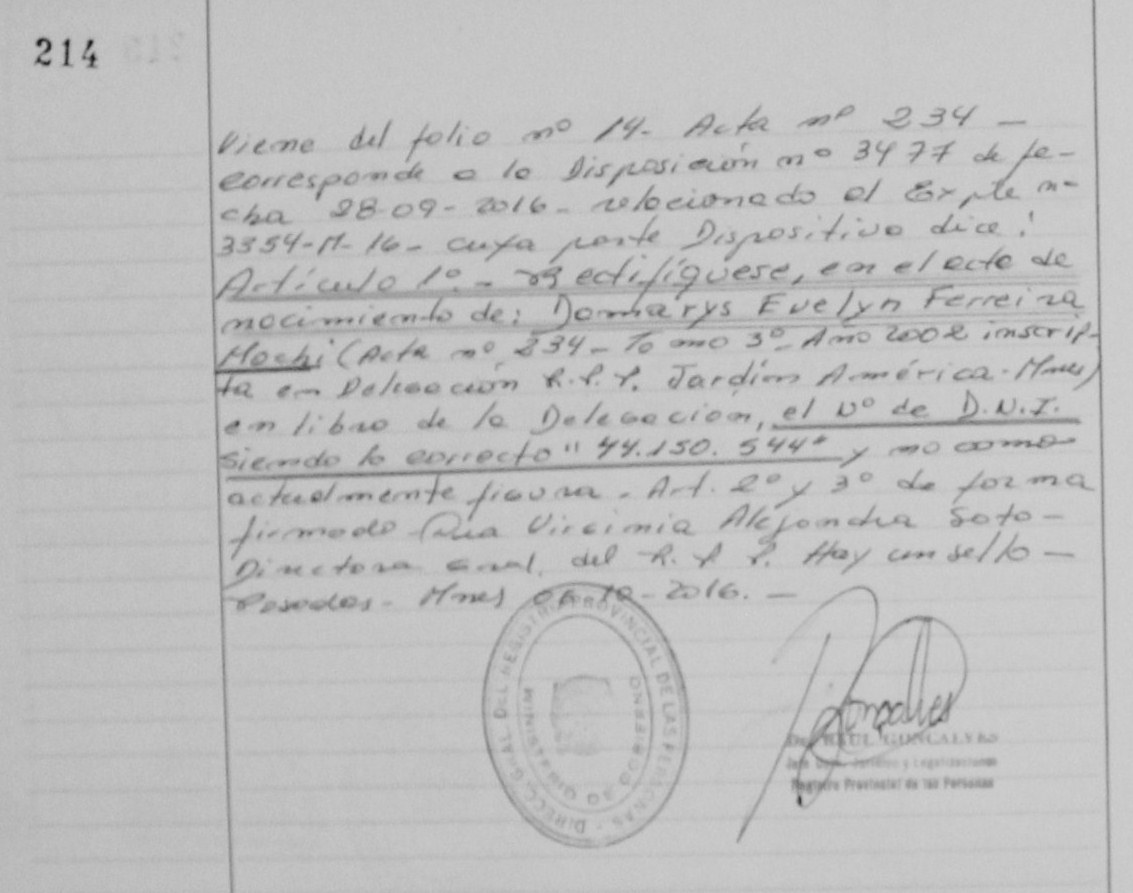 214
Viene del folio nº 14- Acta nº 234 -
corresponde a la Disposición nº 3477 de fe-
cha 28-09-2016- relacionado al Expte n-
3354-M-16- cuya parte Dispositiva dice:
Artículo 1º.- rectifíquese, en el acta de
nacimiento de: Domarys Evelyn Ferreira
Mochi (Acta nº 234- Tomo 3º- Año 2002 inscrip-
ta en Delegación R.P.P. Jardín América-Mnes)
en libro de la Delegacion, el Nº de D.N.I.
siendo lo correcto "44.150.544" y no como
actualmente figura. Art. 2º y 3º de forma
firmado Dra Virginia Alejandra Soto-
Directora Gral. del R.P.P. Hay un sello-
Posadas- Mnes 06-10-2016.-
DIRECC. GRAL. DEL REGISTRO PROVINCIAL DE LAS PERSONAS
MINISTERIO DE GOBIERNO
RAUL GONCALVES
Jurídico y Legalizaciones
Registro Provincial de las Personas